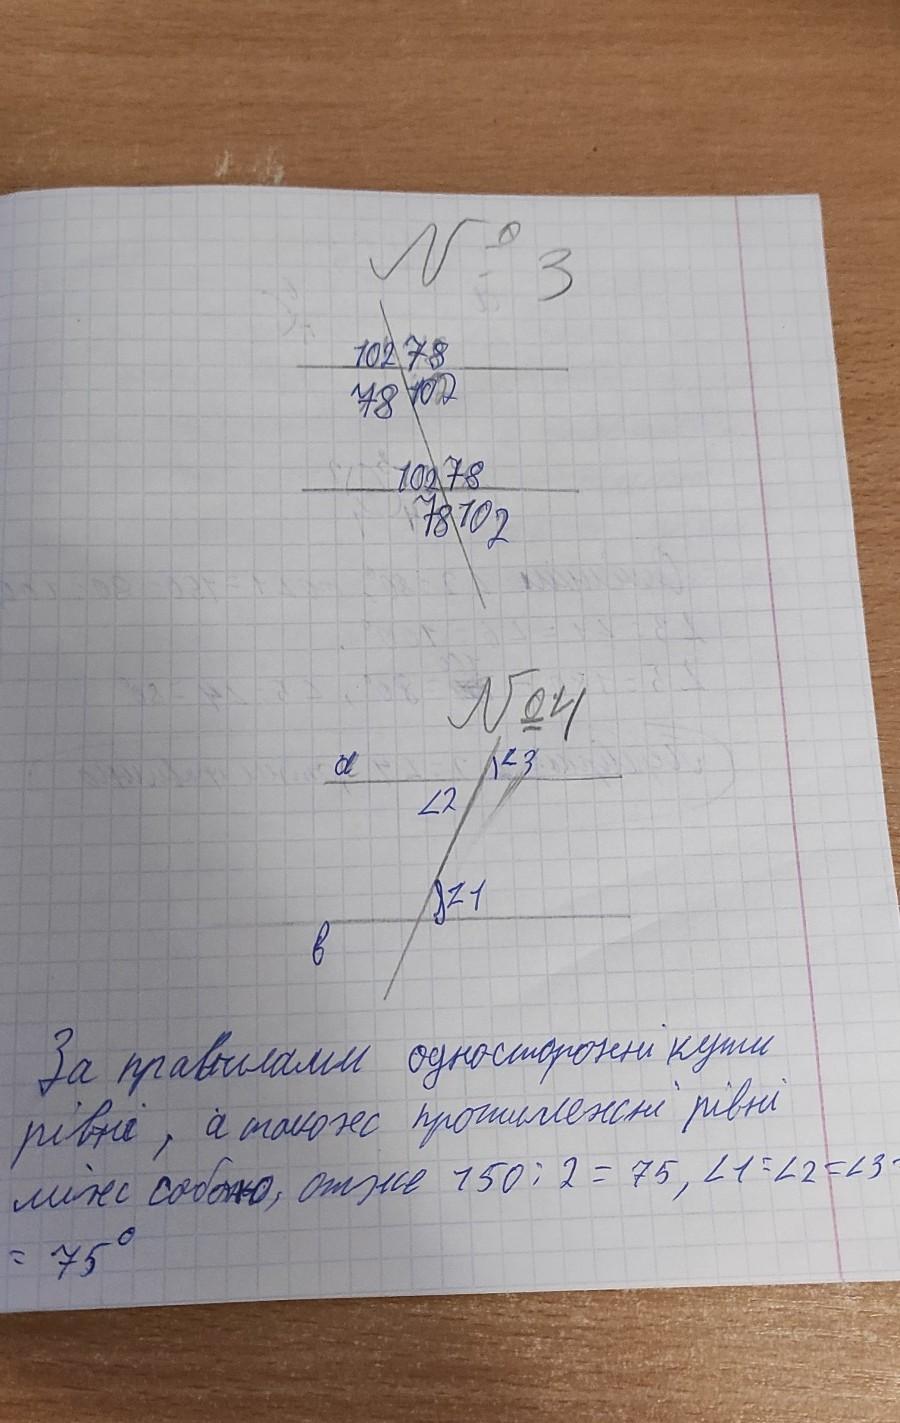 № 3
102 78
78 102
102 78
78 102
№ 4
a ∠3
∠2
∠1
в
За правилами односторонні кути
рівні, а також протилежні рівні
між собою, отже 150:2 = 75, ∠1=∠2=∠3=
= 75°